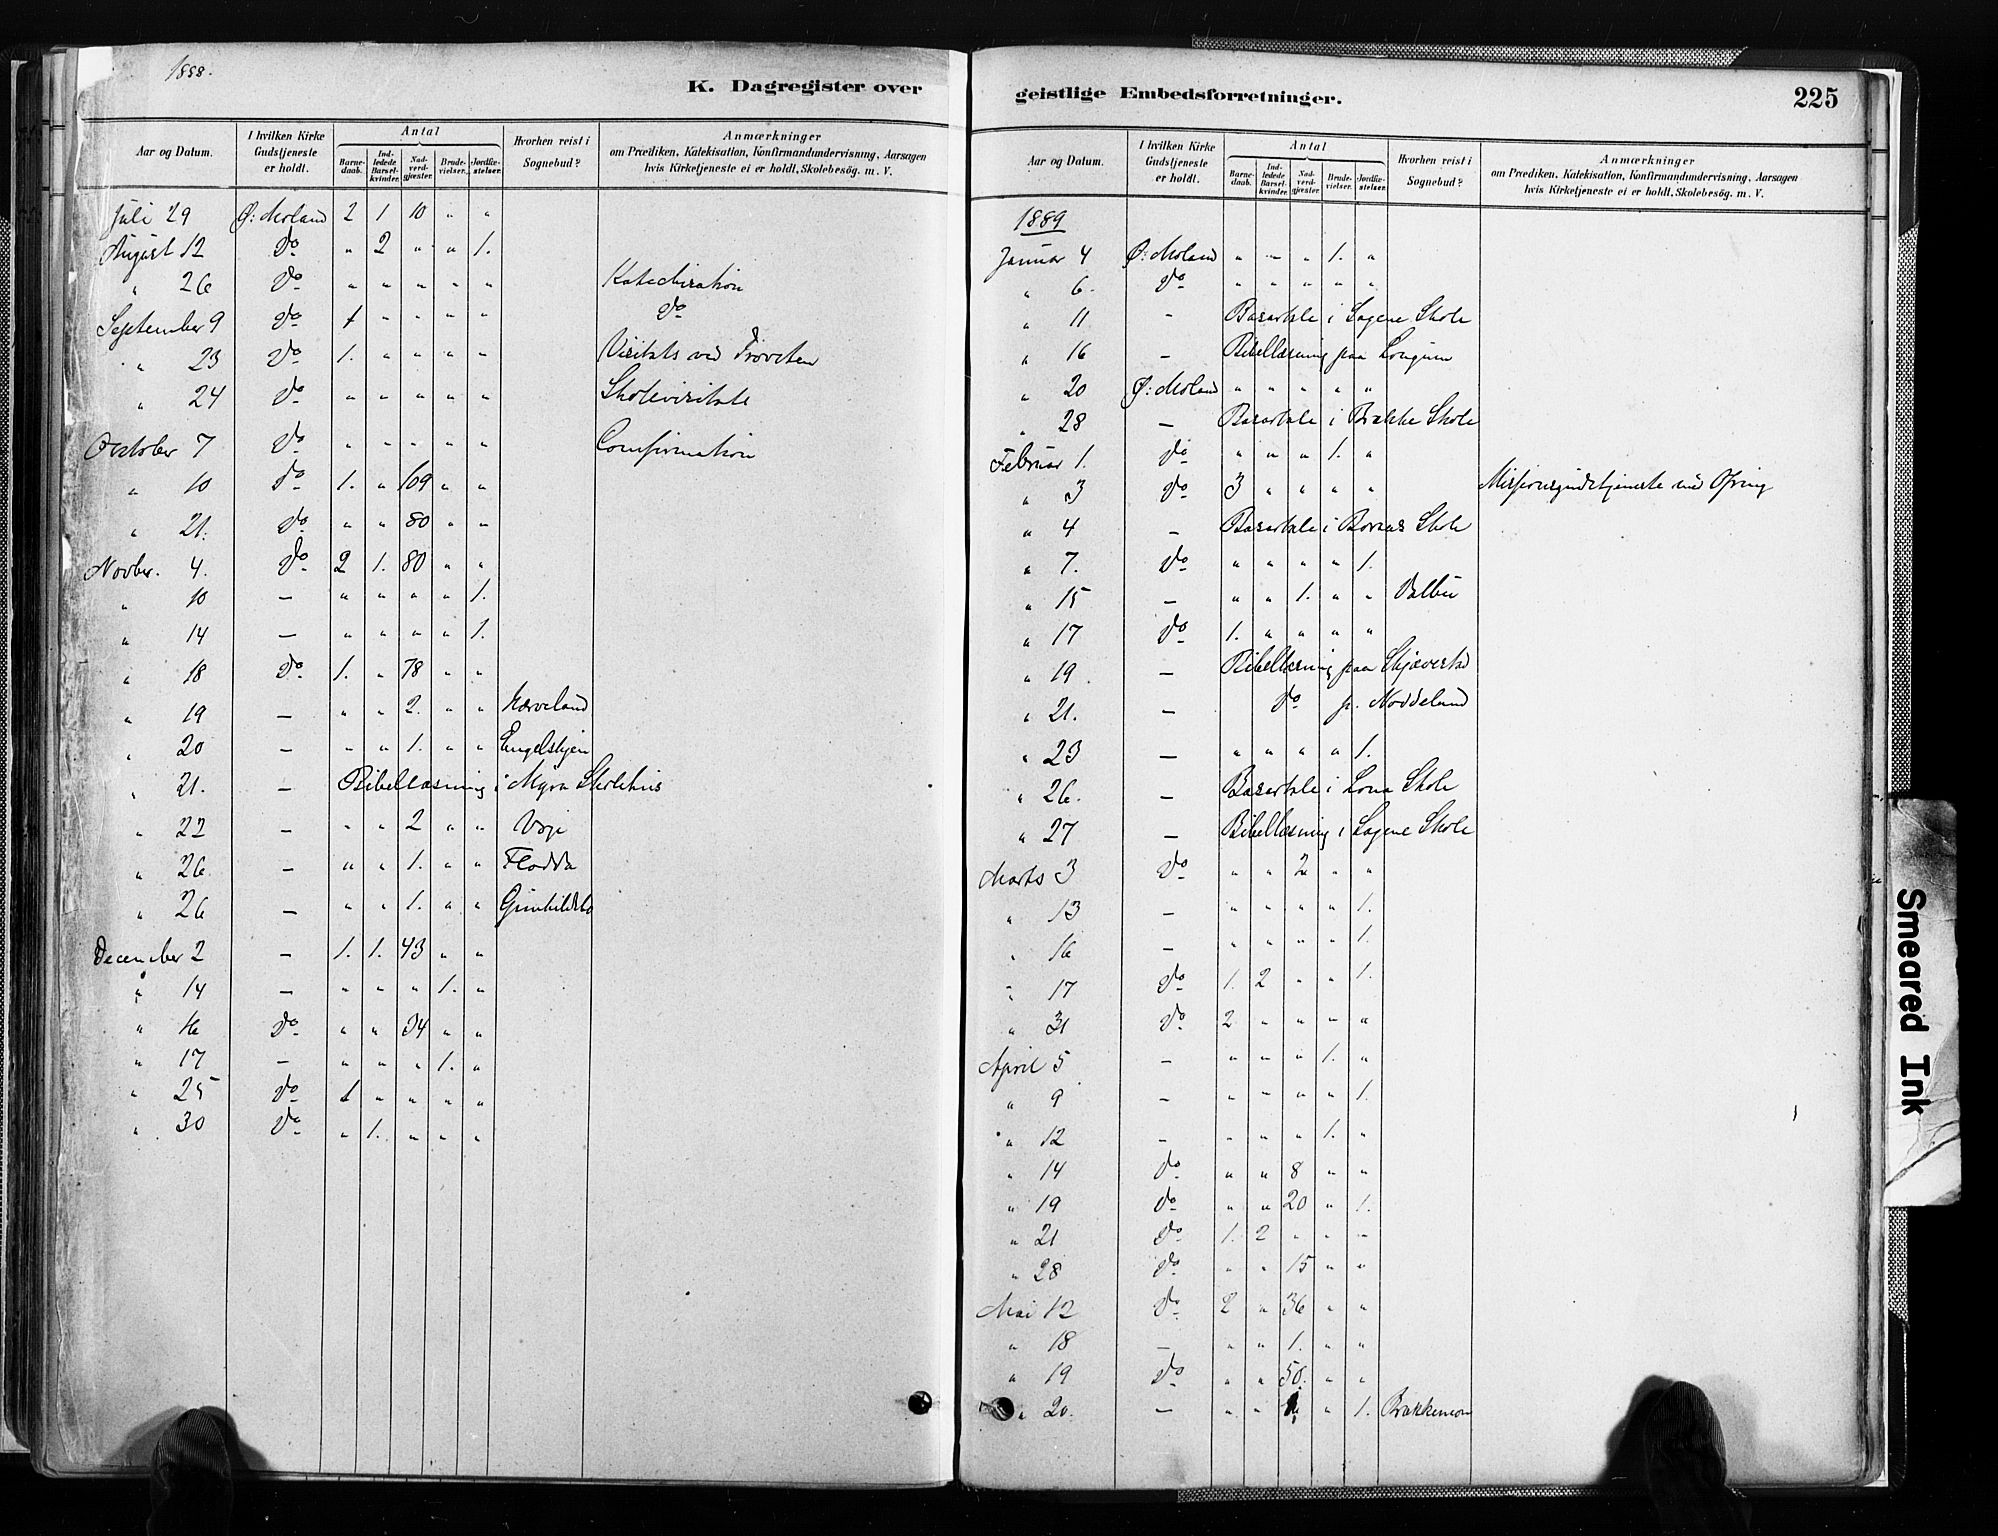 1888.
K. Dagregister over
Aar og Datum. I hvilken Kirke Gudstjeneste er holdt. Antal Barnedaab. Indledede Barselkvinder. Nadverdgjæster. Brudevielser. Jordfæstelser. Hvorhen reist i Sognebud? Anmærkninger om Prædiken, Katekisation, Konfirmandundervisning, Aarsagen hvis Kirketjeneste ei er holdt, Skolebesög. m. V.
Juli 29 Ø: Moland 2 1 10 " "
August 12 do " 2 " " 1.
" 26 do " " " " " Katechisation
September 9 do 1 " " " " do
" 23 do 1. " " " " Visitats ved Provsten
" 24 do " " " " " Skolevisitats
Oktober 7 do " " " " " Confirmation
" 10 do 1. " 109 " "
" 21. do " " 80 " "
Novber. 4. do 2 1. 80 " "
" 10 – " " " " 1.
" 14 – " " " " 1.
" 18 do 1. " 78 " "
" 19 – " " 2. " "
" 20 – " " 1. " " Engelskjen
" 21. – Bibellæsning i Myra Skolehus
" 22 – " " 2 " " Voje
" 26 – " " 1. " " Flodda
" 26 – " " 1. " "
December 2 – 1. 1. 43 " "
" 14 – " " " 1. "
" 16 do " " 34 " "
" 17 – " " " 1. "
" 25 do 1 " " " "
" 30 do " 1. " " "
geistlige Embedsforretninger. 225
Aar og Datum. I hvilken Kirke Gudstjeneste er holdt. Antal Barnedaab. Indledede Barselkvinder. Nadverdgjæster. Brudevielser. Jordfæstelser. Hvorhen reist i Sognebud? Anmærkninger om Prædiken, Katekisation, Konfirmandundervisning, Aarsagen hvis Kirketjeneste ei er holdt, Skolebesög. m. V.
1889
Januar 4 Ø: Moland " – " 1. "
" 6. do " " " " "
" 11 – Basartale i Sagene Skole
" 16 – Bibellæsning paa Longum
" 20 Ø: Moland " " " " "
" 28 – Basartale i Brække Skole
Februar 1. do " " " 1. "
" 3 do 3 " " " " Missionsgudstjeneste med Ofring
" 4 – Basartale i Skole
" 7. do " " " " 1.
" 15 – " " 1. " " Dalbu
" 17 do 1. " " " "
" 19 – Bibellæsning paa
" 21. – do p. Noddeland
" 23 – " " " " 1.
" 26. – Basartale i Lona Skole
" 27 – Bibellæsning i Sagene Skole
Marts 3 do " " 2 " "
" 13 – " " " " 1.
" 16 – " " " " 1.
" 17 do 1. 2 " " 1.
" 31 do 2 " " " "
April 5 – " " " 1. "
" 9 – " " " " 1.
" 12 – " " " 1. "
" 14 do " " 8 " "
" 19 do " " 20 " 1.
" 21 do 1. 2 " " "
" 28 do " " 15 " "
Mai 12 do 2 " 36 " "
" 18 – " " 1. " "
" 19 do " " 50. " "
" 20. – " " " 1.
Smeared Ink